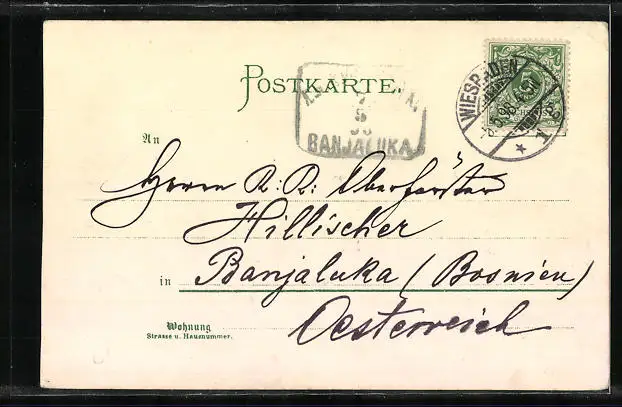 POSTKARTE.
WIESBADEN
1
BANJALUKA
An
Herrn K. K. Oberförster
Hillischer
in Banjaluka (Bosnien)
Oesterreich
Wohnung
Strasse u. Hausnummer.